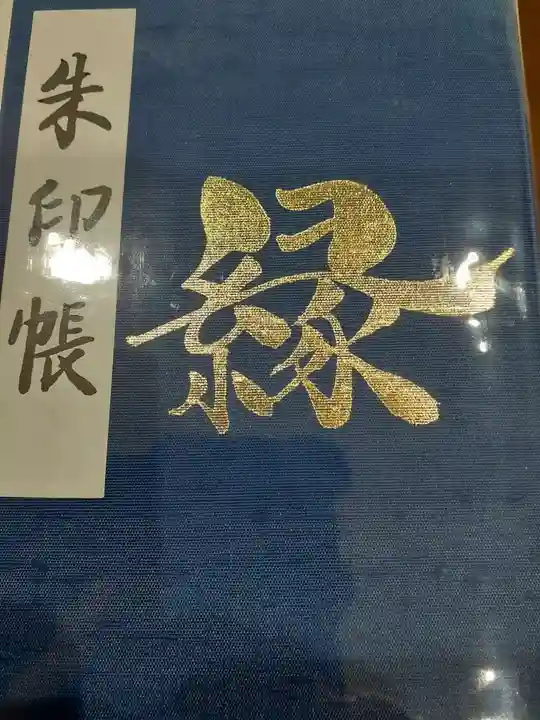 朱印帳
縁